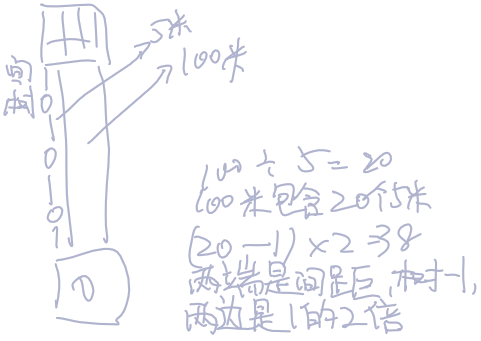 5米
100米
间
树
100÷5=20
100米包含20个5米
(20-1)×2=38
两端是间距,树-1,
两边是1的2倍